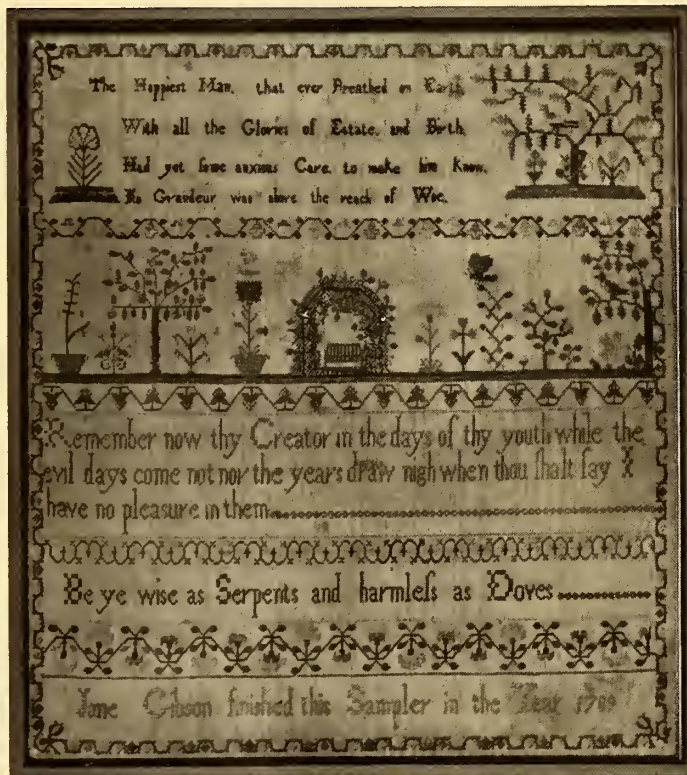 The Happiest Man, that ever Breathed on Earth,
With all the Glories of Estate, and Birth,
Had yet ſome anxious Care, to make him Know,
No Grandeur was above the reach of Woe,
Remember now thy Creator in the days of thy youth while the
evil days come not nor the years draw nigh when thou ſhalt ſay I
have no pleasure in them
Be ye wise as Serpents and harmleſs as Doves
Jane Gibson finished this Sampler in the Year